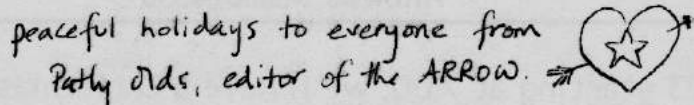 peaceful holidays to everyone from
Patty Olds, editor of the ARROW.